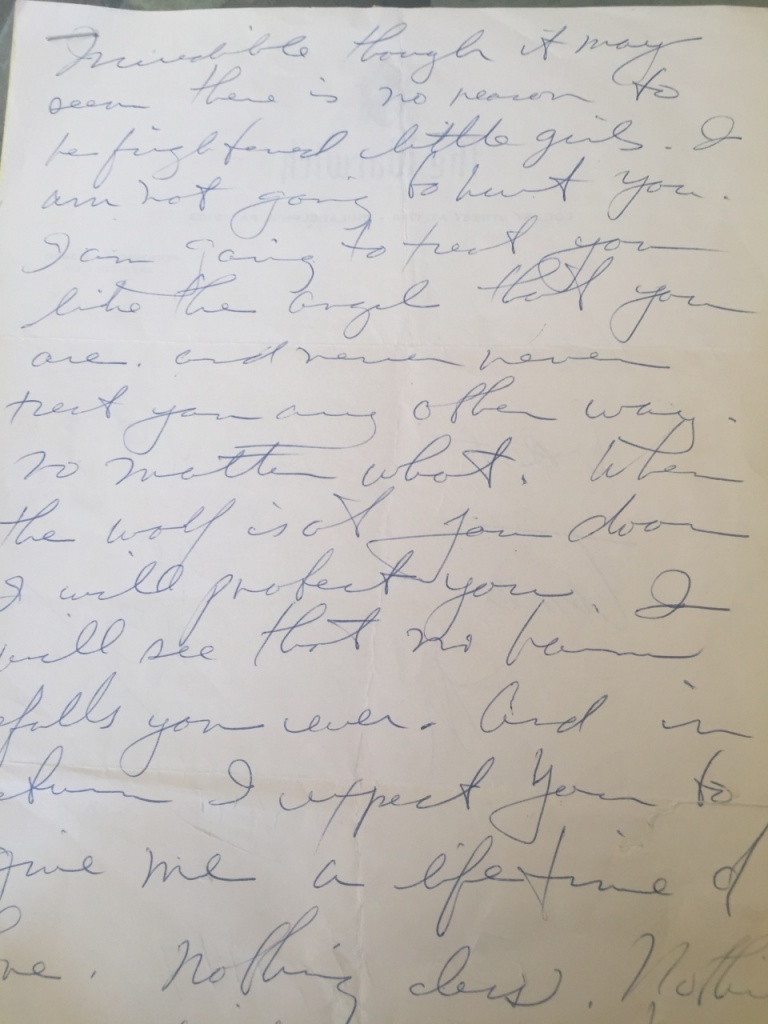 Incredible though it may
seem there is no reason to
be frightened little girls. I
am not going to hurt you.
I am going to treat you
like the angel that you
are. and never never
treat you any other way.
no matter what. When
the wolf is at your door
I will protect you. I
will see that no harm
efalls you ever. And in
eturn I expect you to
give me a lifetime of
ove. Nothing less. Nothi